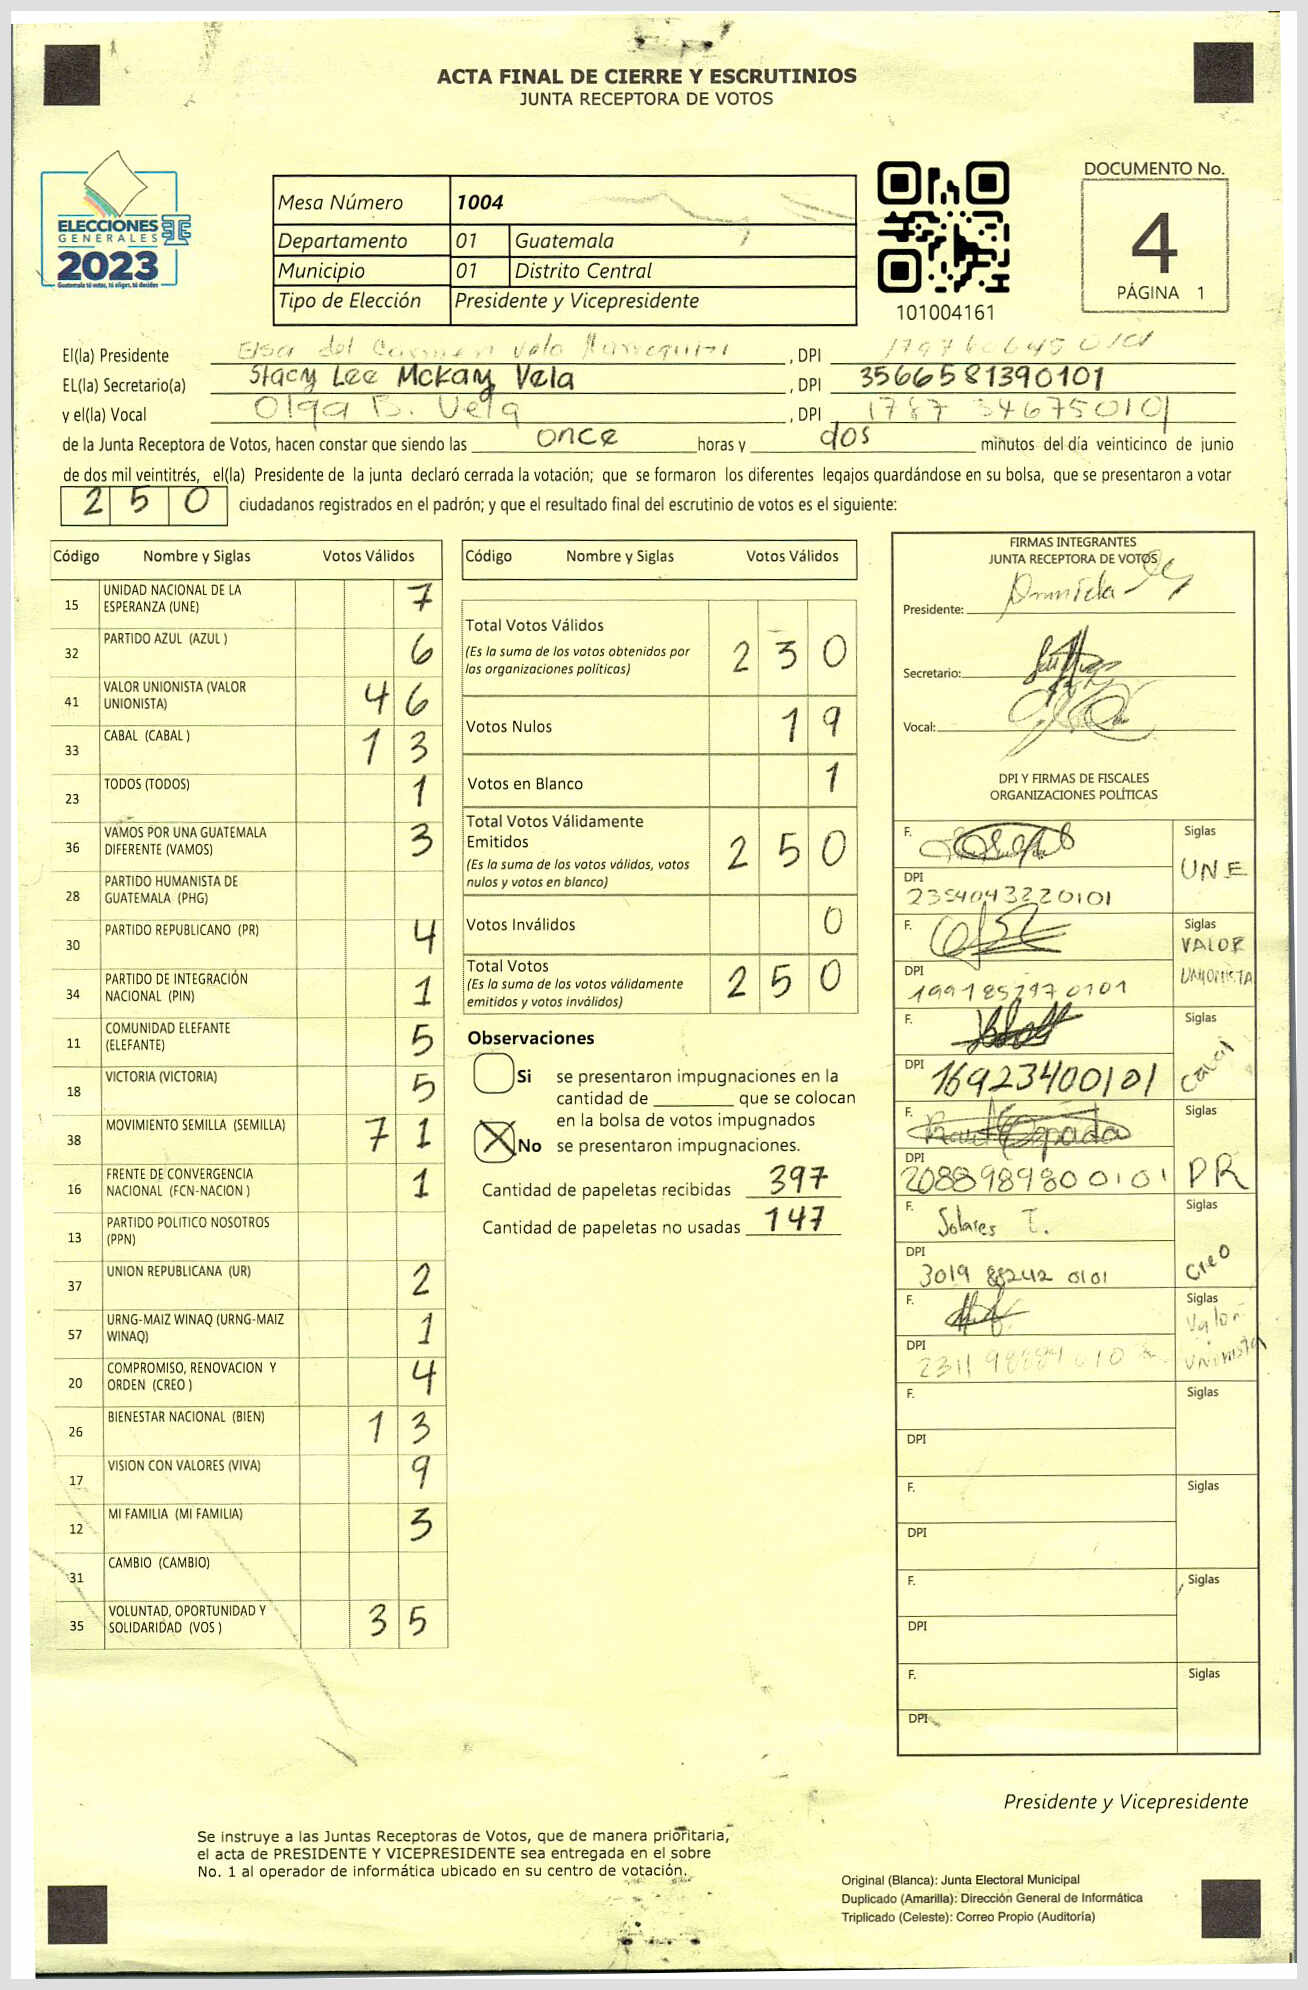 ACTA FINAL DE CIERRE Y ESCRUTINIOS
JUNTA RECEPTORA DE VOTOS
ELECCIONES
GENERALES
2023
Guatemala tú votas, tú eliges, tú decides
Mesa Número 1004
Departamento 01 Guatemala
Municipio 01 Distrito Central
Tipo de Elección Presidente y Vicepresidente
101004161
DOCUMENTO No.
4
PÁGINA 1
El(la) Presidente Elsa del Carmen Vela , DPI
EL(la) Secretario(a) Stacy Lee McKay Vela , DPI 3566581390101
y el(la) Vocal Olga B. Vela , DPI 1787 346750101
de la Junta Receptora de Votos, hacen constar que siendo las once horas y dos minutos del día veinticinco de junio
de dos mil veintitrés, el(la) Presidente de la junta declaró cerrada la votación; que se formaron los diferentes legajos guardándose en su bolsa, que se presentaron a votar
250 ciudadanos registrados en el padrón; y que el resultado final del escrutinio de votos es el siguiente:
Código Nombre y Siglas Votos Válidos
15 UNIDAD NACIONAL DE LA ESPERANZA (UNE) 7
32 PARTIDO AZUL (AZUL ) 6
41 VALOR UNIONISTA (VALOR UNIONISTA) 46
33 CABAL (CABAL ) 13
23 TODOS (TODOS) 1
36 VAMOS POR UNA GUATEMALA DIFERENTE (VAMOS) 3
28 PARTIDO HUMANISTA DE GUATEMALA (PHG)
30 PARTIDO REPUBLICANO (PR) 4
34 PARTIDO DE INTEGRACIÓN NACIONAL (PIN) 1
11 COMUNIDAD ELEFANTE (ELEFANTE) 5
18 VICTORIA (VICTORIA) 5
38 MOVIMIENTO SEMILLA (SEMILLA) 71
16 FRENTE DE CONVERGENCIA NACIONAL (FCN-NACION ) 1
13 PARTIDO POLITICO NOSOTROS (PPN)
37 UNION REPUBLICANA (UR) 2
57 URNG-MAIZ WINAQ (URNG-MAIZ WINAQ) 1
20 COMPROMISO, RENOVACION Y ORDEN (CREO ) 4
26 BIENESTAR NACIONAL (BIEN) 13
17 VISION CON VALORES (VIVA) 9
12 MI FAMILIA (MI FAMILIA) 3
31 CAMBIO (CAMBIO)
35 VOLUNTAD, OPORTUNIDAD Y SOLIDARIDAD (VOS ) 35
Código Nombre y Siglas Votos Válidos
Total Votos Válidos 230
(Es la suma de los votos obtenidos por
las organizaciones políticas)
Votos Nulos 19
Votos en Blanco 1
Total Votos Válidamente
Emitidos 250
(Es la suma de los votos válidos, votos
nulos y votos en blanco)
Votos Inválidos 0
Total Votos 250
(Es la suma de los votos válidamente
emitidos y votos inválidos)
Observaciones
Si se presentaron impugnaciones en la
cantidad de ________ que se colocan
en la bolsa de votos impugnados
No se presentaron impugnaciones.
Cantidad de papeletas recibidas 397
Cantidad de papeletas no usadas 147
FIRMAS INTEGRANTES
JUNTA RECEPTORA DE VOTOS
Presidente:
Secretario:
Vocal:
DPI Y FIRMAS DE FISCALES
ORGANIZACIONES POLÍTICAS
F. Siglas
UNE
DPI
2354043220101
F. Siglas
VALOR
UNIONISTA
DPI
F. Siglas
Cabal
DPI 16923400101
F. Siglas
PR
DPI
2088989800101
F. Solares T. Siglas
Creo
DPI
3019 88242 0101
F. Siglas
Valor
Unionista
DPI
F. Siglas
DPI
F. Siglas
DPI
F. Siglas
DPI
F. Siglas
DPI
Presidente y Vicepresidente
Se instruye a las Juntas Receptoras de Votos, que de manera prioritaria,
el acta de PRESIDENTE Y VICEPRESIDENTE sea entregada en el sobre
No. 1 al operador de informática ubicado en su centro de votación.
Original (Blanca): Junta Electoral Municipal
Duplicado (Amarilla): Dirección General de Informática
Triplicado (Celeste): Correo Propio (Auditoría)